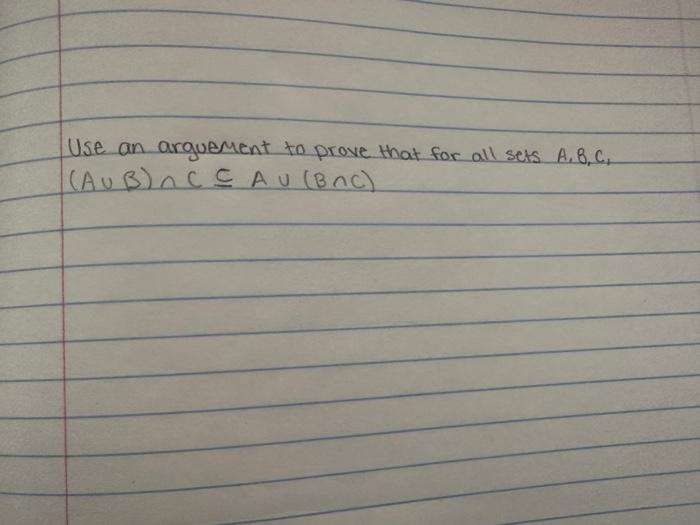 Use an arguement to prove that for all sets A, B, C,
(A ∪ B) ∩ C ⊆ A ∪ (B ∩ C)